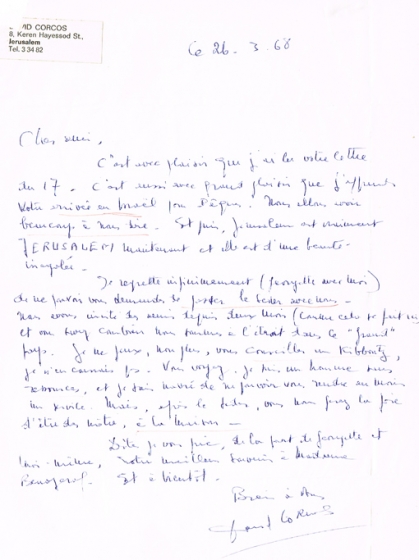 VID CORCOS
8, Keren Hayessod St.,
Jerusalem
Tel. 3 34 62
Ce 26. 3. 68
Cher ami,
C'est avec plaisir que j'ai lu votre lettre
du 17. C'est aussi avec grand plaisir que j'apprends
votre arrivée en Israël pour Pâques. Nous allons avoir
beaucoup à nous dire. Et puis, Jérusalem est vraiment
JERUSALEM maintenant et elle est d'une beauté
inégalée.
Je regrette infiniment (Georgette avec moi)
de ne pouvoir vous demander de passer le Seder avec nous.
Nous avons invité des amis depuis deux mois (comme cela se fait ici
et vous combien nous sommes à l'étroit dans ce "grand"
pays. Je ne peux, non plus, vous conseiller un Kibboutz,
je n'en connais pas. Vous voyez, je suis un homme sans
ressources, et je suis navré de ne pouvoir vous rendre au moins
un service. Mais, après le Seder, vous nous ferez la joie
d'être des nôtres, à la maison —
Dites je vous prie, de la part de Georgette et
moi-même, notre meilleur souvenir à Madame
Et à bientôt.
Bien à vous
David Corcos